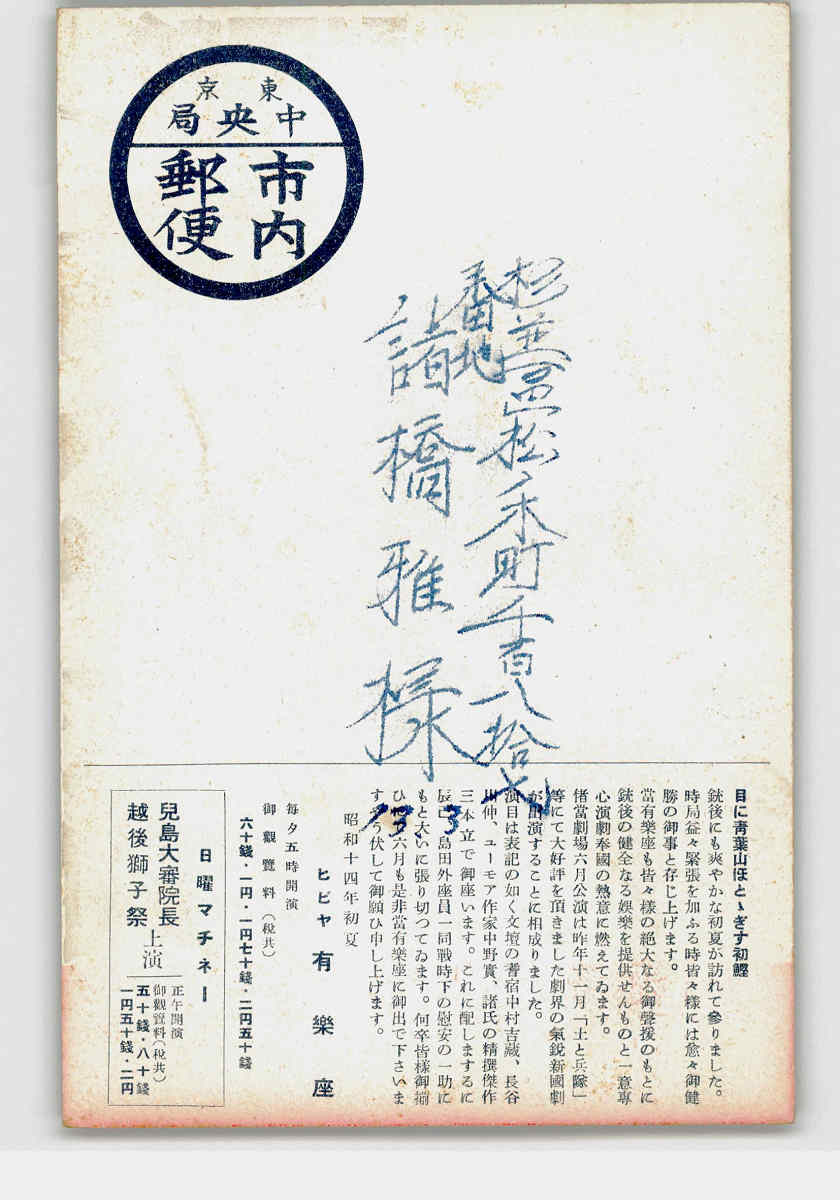 東京
中央局
市内
郵便
杉並区松ノ木町千百八拾七
番地
諸橋雅様
13 3
目に青葉山ほとゝぎす初鰹
銃後にも爽やかな初夏が訪れて參りました。
時局益々緊張を加ふる時皆々様には愈々御健
勝の御事と存じ上げます。
當有樂座も皆々様の絶大なる御聲援のもとに
銃後の健全なる娯樂を提供せんものと一意專
心演劇奉國の熱意に燃えてゐます。
偖當劇場六月公演は昨年十一月「土と兵隊」
等にて大好評を頂きました劇界の氣鋭新國劇
が出演することに相成りました。
演目は表記の如く文壇の耆宿中村吉藏、長谷
川伸、ユーモア作家中野實、諸氏の精撰傑作
三本立で御座います。これに配しまするに
辰巳、島田外座員一同戰時下の慰安の一助に
もと大いに張り切つてゐます。何卒皆様御揃
ひにて六月も是非當有樂座に御出で下さいま
すやう伏して御願ひ申し上げます。
昭和十四年初夏
ヒビヤ 有樂座
每夕五時開演
御觀覽料（税共）
六十錢・一円・一円七十錢・二円五十錢
日曜マチネー
兒島大審院長
越後獅子祭
上演
正午開演
御觀覽料（税共）
五十錢・八十錢
一円五十錢・二円